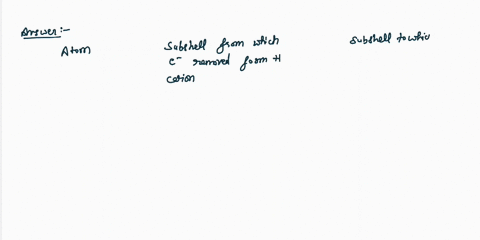 Answer:-
Atom
Subshell from which
e⁻ removed form +1
cation
Subshell to whic